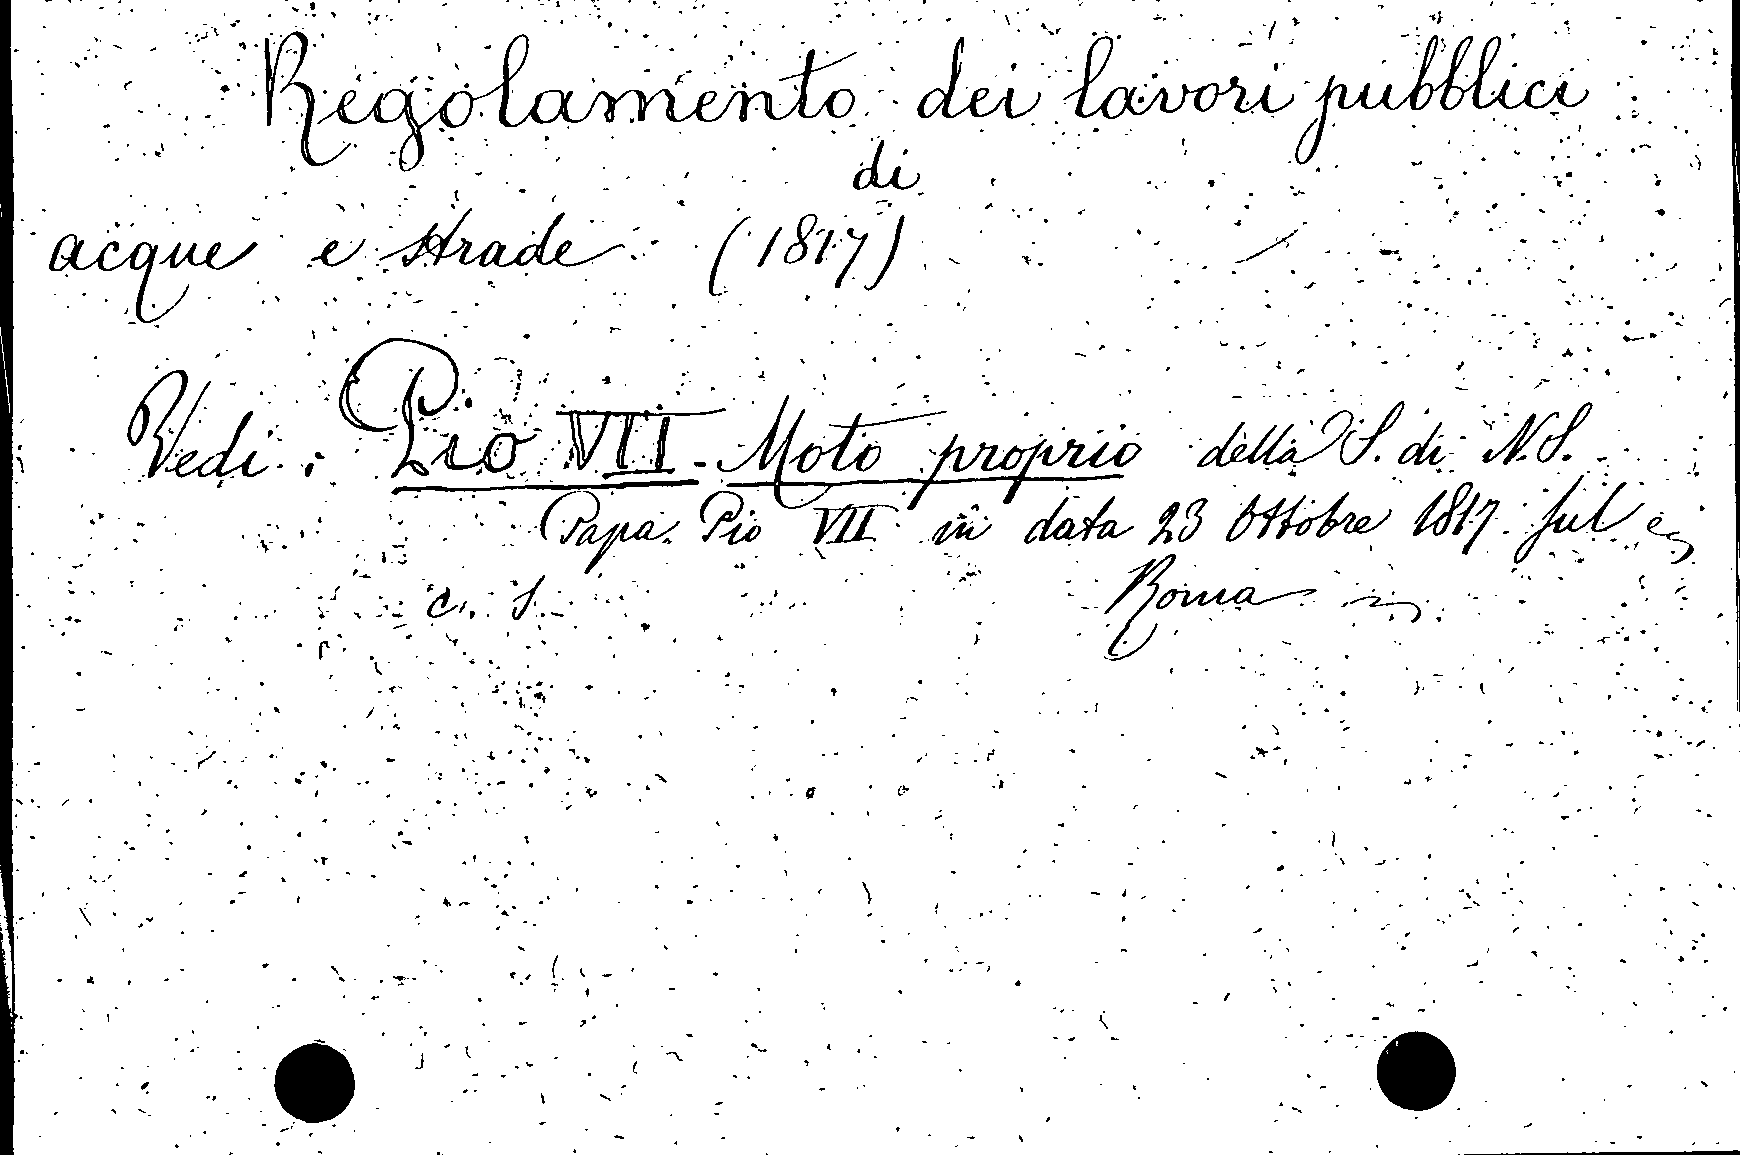 Regolamento dei lavori pubblici
di
acque e strade (1817)
Vedi: Pio VII - Moto proprio della S. di N.S.
Papa Pio VII in data 23 Ottobre 1817 sul
c. s. Roma